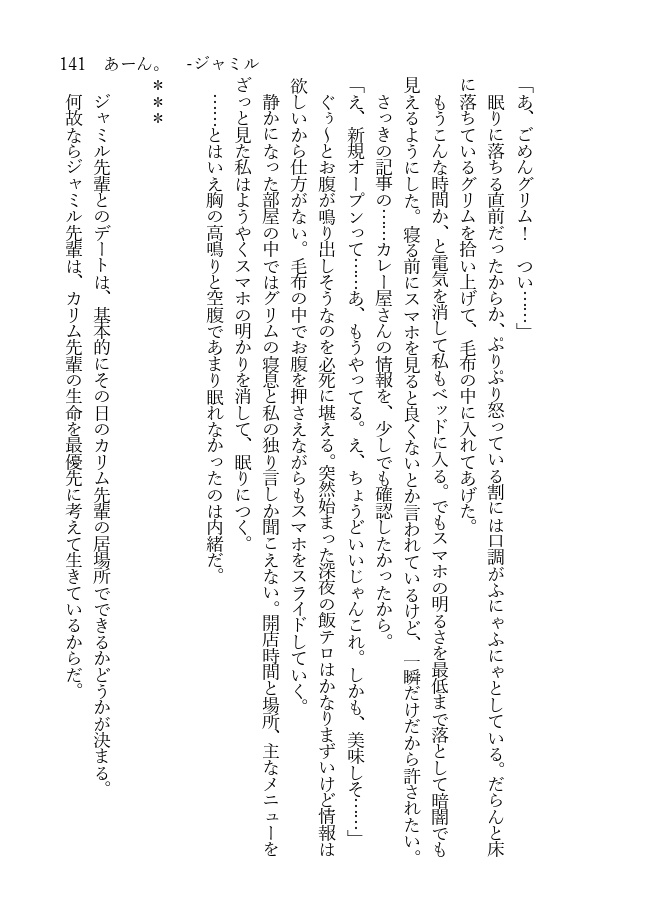 141　あーん。　-ジャミル
「あ、ごめんグリム！　つい……」
　眠りに落ちる直前だったからか、ぷりぷり怒っている割には口調がふにゃふにゃとしている。だらんと床
に落ちているグリムを拾い上げて、毛布の中に入れてあげた。
　もうこんな時間か、と電気を消して私もベッドに入る。でもスマホの明るさを最低まで落として暗闇でも
見えるようにした。寝る前にスマホを見ると良くないとか言われているけど、一瞬だけだから許されたい。
　さっきの記事の……カレー屋さんの情報を、少しでも確認したかったから。
「え、新規オープンって……あ、もうやってる。え、ちょうどいいじゃんこれ。しかも、美味しそ……」
　ぐぅ～とお腹が鳴り出しそうなのを必死に堪える。突然始まった深夜の飯テロはかなりまずいけど情報は
欲しいから仕方がない。毛布の中でお腹を押さえながらもスマホをスライドしていく。
　静かになった部屋の中ではグリムの寝息と私の独り言しか聞こえない。開店時間と場所、主なメニューを
ざっと見た私はようやくスマホの明かりを消して、眠りにつく。
　……とはいえ胸の高鳴りと空腹であまり眠れなかったのは内緒だ。
＊＊＊
　ジャミル先輩とのデートは、基本的にその日のカリム先輩の居場所でできるかどうかが決まる。
　何故ならジャミル先輩は、カリム先輩の生命を最優先に考えて生きているからだ。